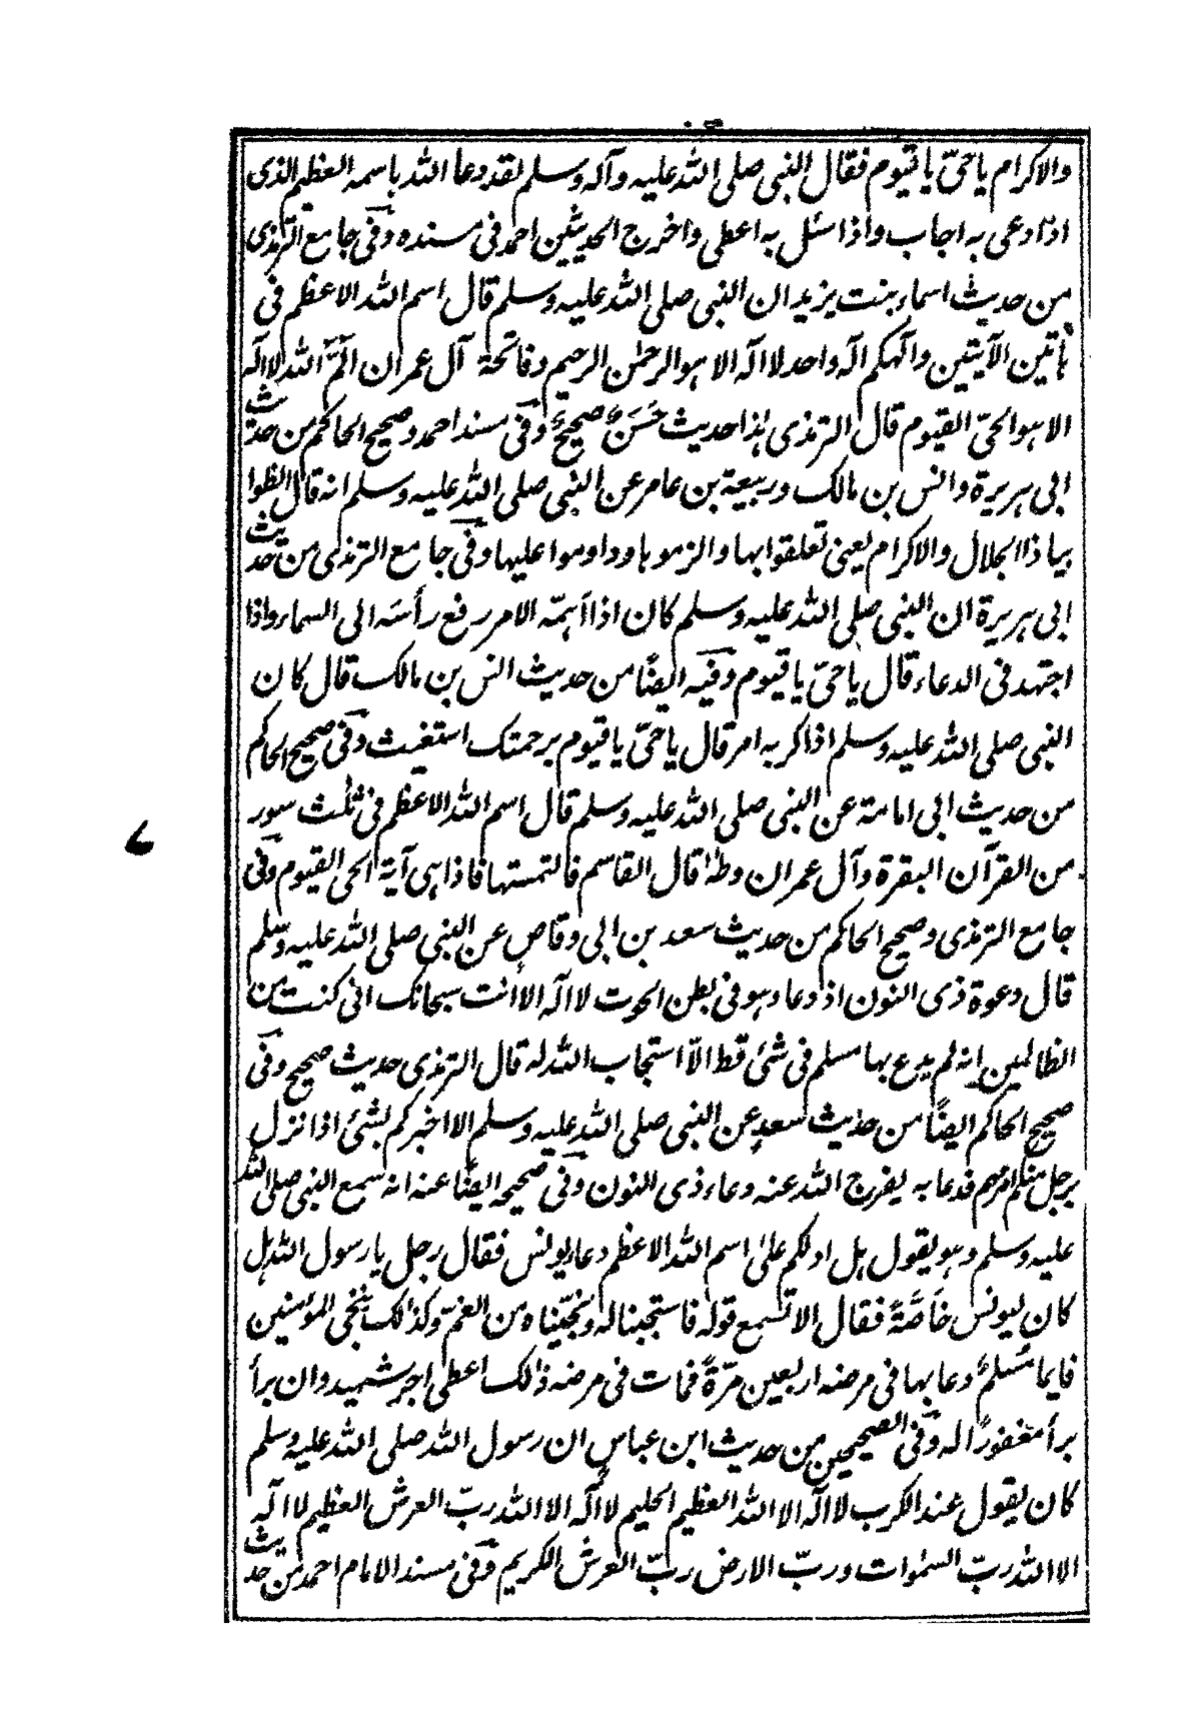 والاكرام يا حيّ يا قيوم فقال النبى صلى الله عليه وآله وسلم لقد دعا الله باسمه العظيم الذى
اذا دعى به اجاب واذا سئل به اعطى واخرج الحديثين احمد فى مسنده وفى جامع الترمذى
من حديث اسماء بنت يزيد ان النبى صلى الله عليه وسلم قال اسم الله الاعظم فى
هاتين الآيتين والٓهكم الٓه واحد لا الٓه الا هو الرحمٰن الرحيم وفاتحة آل عمران الٓمّٓ الله لا الٓه
الا هو الحيّ القيوم قال الترمذى هذا حديث حَسَنٌ صحيحٌ وفى مسند احمد وصحيح الحاكم من حديث
ابى هريرة وانس بن مالك وربيعة بن عامر عن النبى صلى الله عليه وسلم انه قال الظوا
بيا ذا الجلال والاكرام يعنى تعلقوا بها والزموها وداوموا عليها وفى جامع الترمذى من حديث
ابى هريرة ان النبى صلى الله عليه وسلم كان اذا اهمّه الامر رفع رأسَه الى السماء واذا
اجتهد فى الدعاء قال يا حيّ يا قيوم وفيه ايضًا من حديث انس بن مالك قال كان
النبى صلى الله عليه وسلم اذا كربه امر قال يا حيّ يا قيوم برحمتك استغيث وفى صحيح الحاكم
من حديث ابى امامة عن النبى صلى الله عليه وسلم قال اسم الله الاعظم فى ثلٰث سور
من القرآن البقرة وآل عمران وطٰهٰ قال القاسم فالتمستها فاذا هى آية الحى القيوم وفى
جامع الترمذى وصحيح الحاكم من حديث سعد بن ابى وقاص عن النبى صلى الله عليه وسلم
قال دعوة ذى النون اذ دعا وهو فى بطن الحوت لا الٓه الا انت سبحانك انى كنت من
الظالمين انه لم يدع بها مسلم فى شئ قط الّا استجاب الله له قال الترمذى حديث صحيح وفى
صحيح الحاكم ايضًا من حديث سعدٍ عن النبى صلى الله عليه وسلم الا اخبركم بشئ اذا نزل
برجل منكم امر مهم فدعا به يفرج الله عنه دعاء ذى النون وفى صحيحه ايضًا عنه انه سمع النبى صلى الله
عليه وسلم وهو يقول هل ادلكم علىٰ اسم الله الاعظم دعاء يونس فقال رجل يا رسول الله هل
كان ليونس خَاصَّةً فقال الا تسمع قوله فاستجبنا له ونجّيناه من الغمّ وكذالك ننجى المؤمنين
فايما مُسلمٍ دعا بها فى مرضه اربعين مرّةً فمات فى مرضه ذٰلك اعطى اجر شهيد وان برأ
برأ مغفورًا له وفى الصحيحين من حديث ابن عباس ان رسول الله صلى الله عليه وسلم
كان يقول عند الكرب لا الٓه الا الله العظيم الحليم لا الٓه الا الله ربّ العرش العظيم لا الٓه
الا الله ربّ السمٰوات وربّ الارض ربّ العرش الكريم وفى مسند الامام احمد من حديث